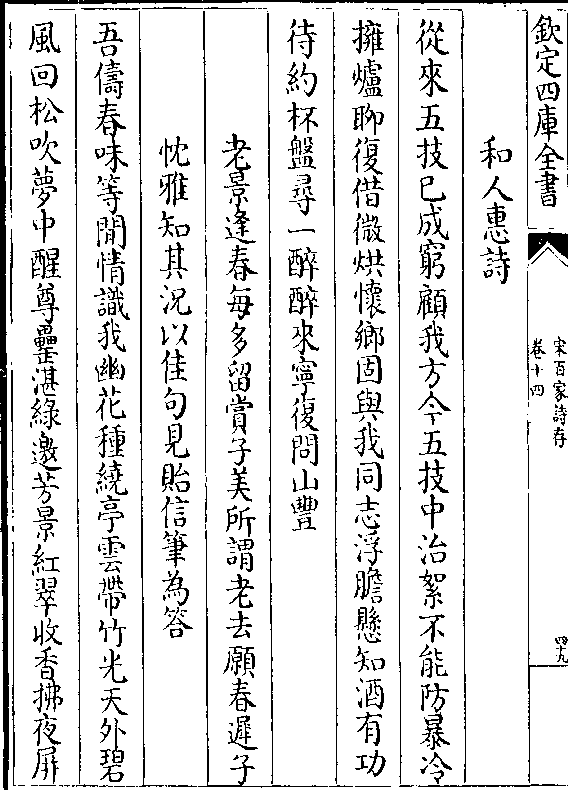 欽定四庫全書
宋百家詩存
卷十四
四九
和人惠詩
從來五技已成窮顧我方今五技中治絮不能防暴冷
擁爐聊復借微烘懷鄉固與我同志浮膽懸知酒有功
待約杯盤尋一醉醉來寧復問山豐
老景逢春每多留賞子美所謂老去願春遲子
忱雅知其況以佳句見貽信筆為答
吾儔春味等閒情識我幽花種繞亭雲帶竹光天外碧
風回松吹夢中醒尊罍湛綠邀芳景紅翠收香拂夜屏